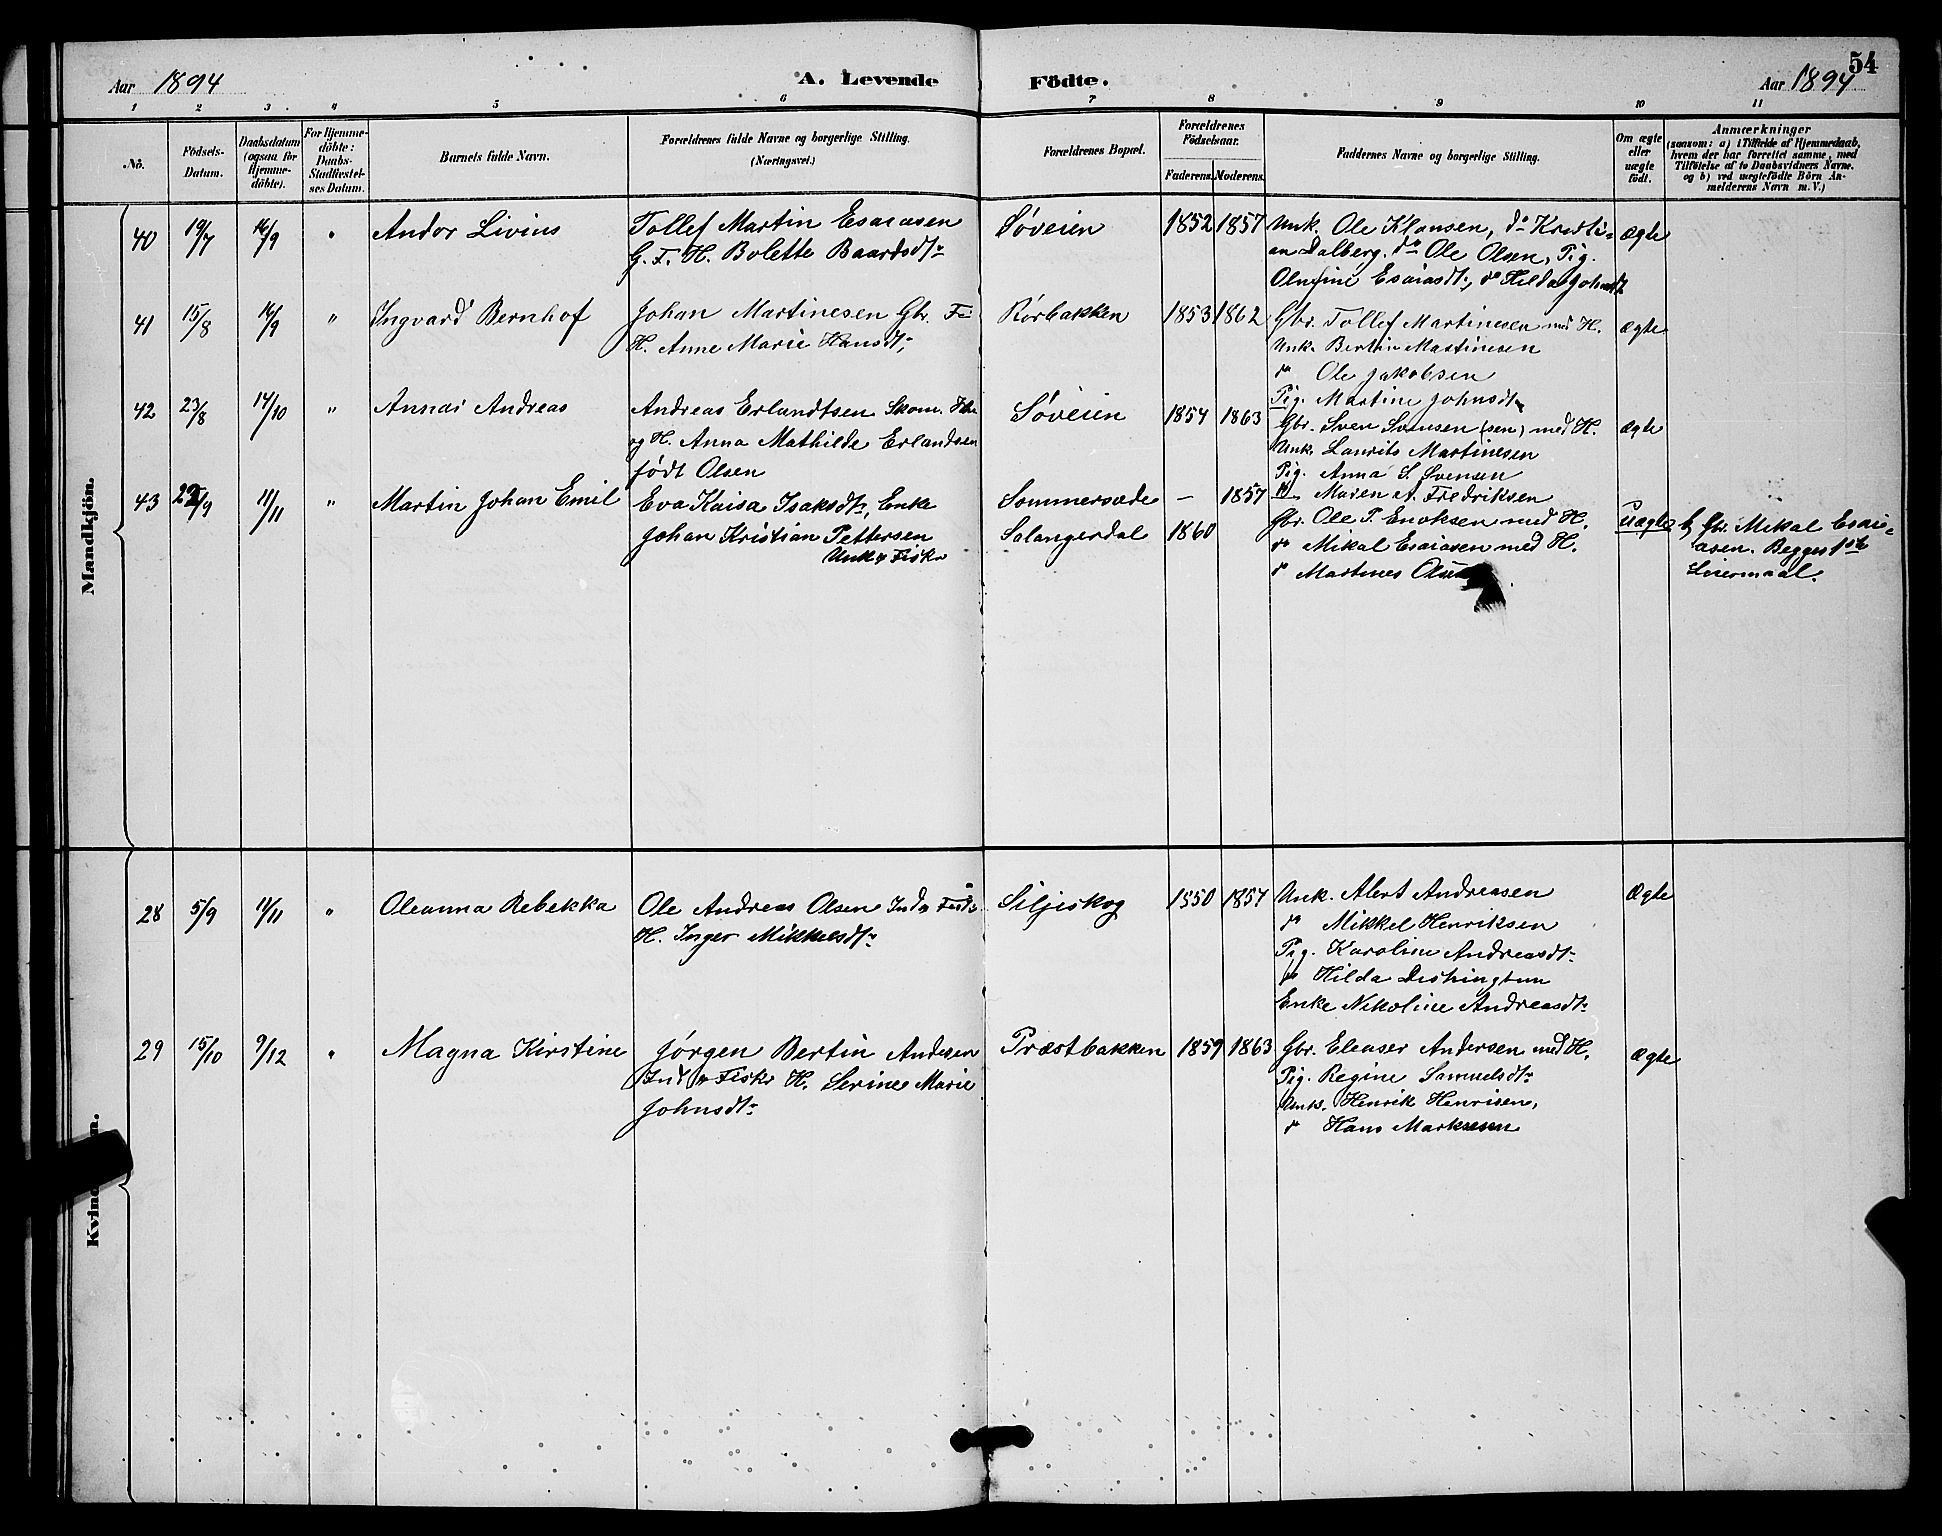 54
Aar 1894 A. Levende Födte. Aar 1894
1 2 3 4 5 6 7 8 9 10 11
No.
Födsels-Datum.
Daabsdatum (ogsaa for Hjemme-döbte).
For Hjemme-döbte: Daabs-Stadfæstel-ses Datum.
Barnets fulde Navn.
Forældrenes fulde Navne og borgerlige Stilling. (Næringsvei.)
Forældrenes Bopæl.
Forældrenes Födselsaar.
Faderens. Moderens.
Faddernes Navne og borgerlige Stilling.
Om ægte eller uægte födt.
Anmærkninger
(saasom: a) i Tilfælde af Hjemmedaab,
hvem der har forrettet samme, med
Tilföielse af to Daabsvidners Navne.
og b) ved uægtefödte Börn An-
melderens Navn m. V.)
Mandkjön.
40 19/7 16/9 " Andor Livius
Tollef Martin Esaiasen
G. F. H. Bolette Baardsdtr
Søveien 1852 1857
Unk. Ole Klausen, do Kristi=
an Dalberg. do Ole Olsen, Pig.
Olufine Esaiasdt., do Hilda Johnsdt
ægte
41 15/8 16/9 " Ingvard Bernhof
Johan Martinesen Gbr. Fi
H. Anne Marie Hansdt,
Rørbakken 1853 1862
Gbr. Tollef Martinesen med H.
Unk. Bertin Martinesen
do Ole Jakobsen
Pig. Martine Johnsdt
ægte
42 23/8 14/10 " Annar Andreas
Andreas Erlandtsen Skom.
og H. Anna Mathilde Erlandsen
født Olsen
Søveien 1854 1863
Gbr. Sven Svensen (sen) med H.
Unk. Laurits Martinesen
Pig. Anna S. Svensen
do Maren A. Fredriksen
ægte
43 22/9 11/11 " Martin Johan Emil
Eva Kaisa Isaksdt, Enke
Johan Kristian Pettersen
Unk. Fisk
Sommersæde - 1857
Salangerdal 1860
Gbr. Ole P. Enoksen med H.
do Mikal Esaiasen med H.
do Martines Olsen
uægte
b, Gbr. Mikal Esai=
asen. Begges 1ste
Leiermaal.
Kvindekjön.
28 5/9 11/11 " Oleanna Rebekka
Ole Andreas Olsen Ind.
H. Inger Mikkelsdtr
Siljeskog 1850 1857
Unk. Albert Andreasen
do Mikkel Henriksen
Pig. Karoline Andreasdt
do Hilda Dishingtun
Enke Nikoline Andreasdt
Ægte
29 15/10 9/12 " Magna Kirstine
Jørgen Bertin Andersen
Ind. Fisker H. Serine Marie
Johnsdt
Præstbakken 1859 1863
Gbr. Eleaser Andersen med H.
Pig. Regine Samuelsdt
Unk. Henrik Henrisen,
do Hans Markusen
Ægte